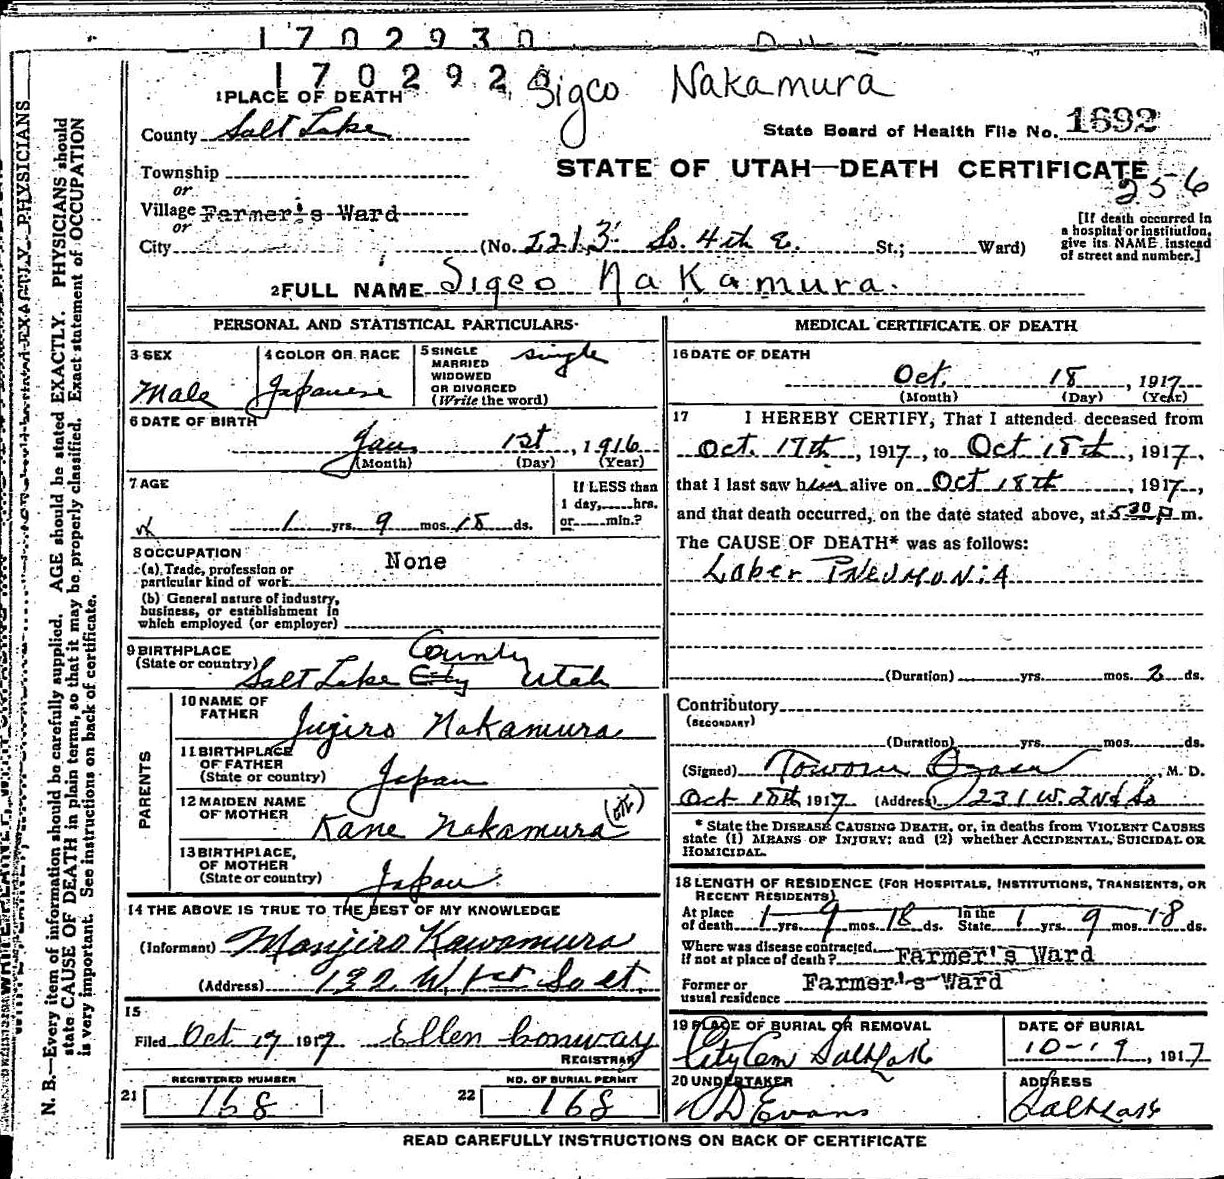 1702930
170292
Sigeo Nakamura
1 PLACE OF DEATH
County Salt Lake
State Board of Health File No. 1692
Township
or
Village Farmer's Ward
or
City
STATE OF UTAH—DEATH CERTIFICATE
256
(No. 2213 So. 4th E. St.; Ward)
[If death occurred in
a hospital or institution,
give its NAME instead
of street and number.]
2 FULL NAME Sigeo Nakamura.
PERSONAL AND STATISTICAL PARTICULARS
3 SEX
Male
4 COLOR OR RACE
Japanese
5 SINGLE
MARRIED
WIDOWED
OR DIVORCED
(Write the word)
single
6 DATE OF BIRTH
Jan. 1st, 1916
(Month) (Day) (Year)
7 AGE
1 yrs. 9 mos. 18 ds.
If LESS than
1 day, hrs.
or min.?
8 OCCUPATION
(a) Trade, profession or
particular kind of work
None
(b) General nature of industry,
business, or establishment in
which employed (or employer)
9 BIRTHPLACE
(State or country)
Salt Lake City County Utah
PARENTS
10 NAME OF
FATHER
Jugiro Nakamura
11 BIRTHPLACE
OF FATHER
(State or country)
Japan
12 MAIDEN NAME
OF MOTHER
Kane Nakamura
13 BIRTHPLACE,
OF MOTHER
(State or country)
Japan
14 THE ABOVE IS TRUE TO THE BEST OF MY KNOWLEDGE
(Informant) Manjiro Kawamura
(Address) 132 W. 1st So st.
15
Filed Oct 19 1917 Ellen Conway
REGISTRAR
21 REGISTERED NUMBER
168
22 NO. OF BURIAL PERMIT
168
MEDICAL CERTIFICATE OF DEATH
16 DATE OF DEATH
Oct. 18, 1917
(Month) (Day) (Year)
17 I HEREBY CERTIFY, That I attended deceased from
Oct. 17th, 1917, to Oct 18th, 1917,
that I last saw him alive on Oct 18th, 1917,
and that death occurred, on the date stated above, at 5 30 p m.
The CAUSE OF DEATH* was as follows:
Lober Pneumonia
(Duration) yrs. mos. 2 ds.
Contributory
(SECONDARY)
(Duration) yrs. mos. ds.
(Signed) M. D.
Oct 18th 1917 (Address) 231 W. 2nd So
* State the DISEASE CAUSING DEATH, or, in deaths from VIOLENT CAUSES
state (1) MEANS OF INJURY: and (2) whether ACCIDENTAL, SUICIDAL OR
HOMICIDAL.
18 LENGTH OF RESIDENCE (FOR HOSPITALS, INSTITUTIONS, TRANSIENTS, OR
RECENT RESIDENTS)
At place
of death 1 yrs. 9 mos. 18 ds. In the
State 1 yrs. 9 mos. 18 ds.
Where was disease contracted
if not at place of death? Farmer's Ward
Former or
usual residence Farmer's Ward
19 PLACE OF BURIAL OR REMOVAL
City Cem Salt Lake
DATE OF BURIAL
10-19, 1917
20 UNDERTAKER
Evans
ADDRESS
Salt Lake
READ CAREFULLY INSTRUCTIONS ON BACK OF CERTIFICATE
N. B.—Every item of information should be carefully supplied. AGE should be stated EXACTLY. PHYSICIANS should
state CAUSE OF DEATH in plain terms, so that it may be properly classified. Exact statement of OCCUPATION
is very important. See instructions on back of certificate.